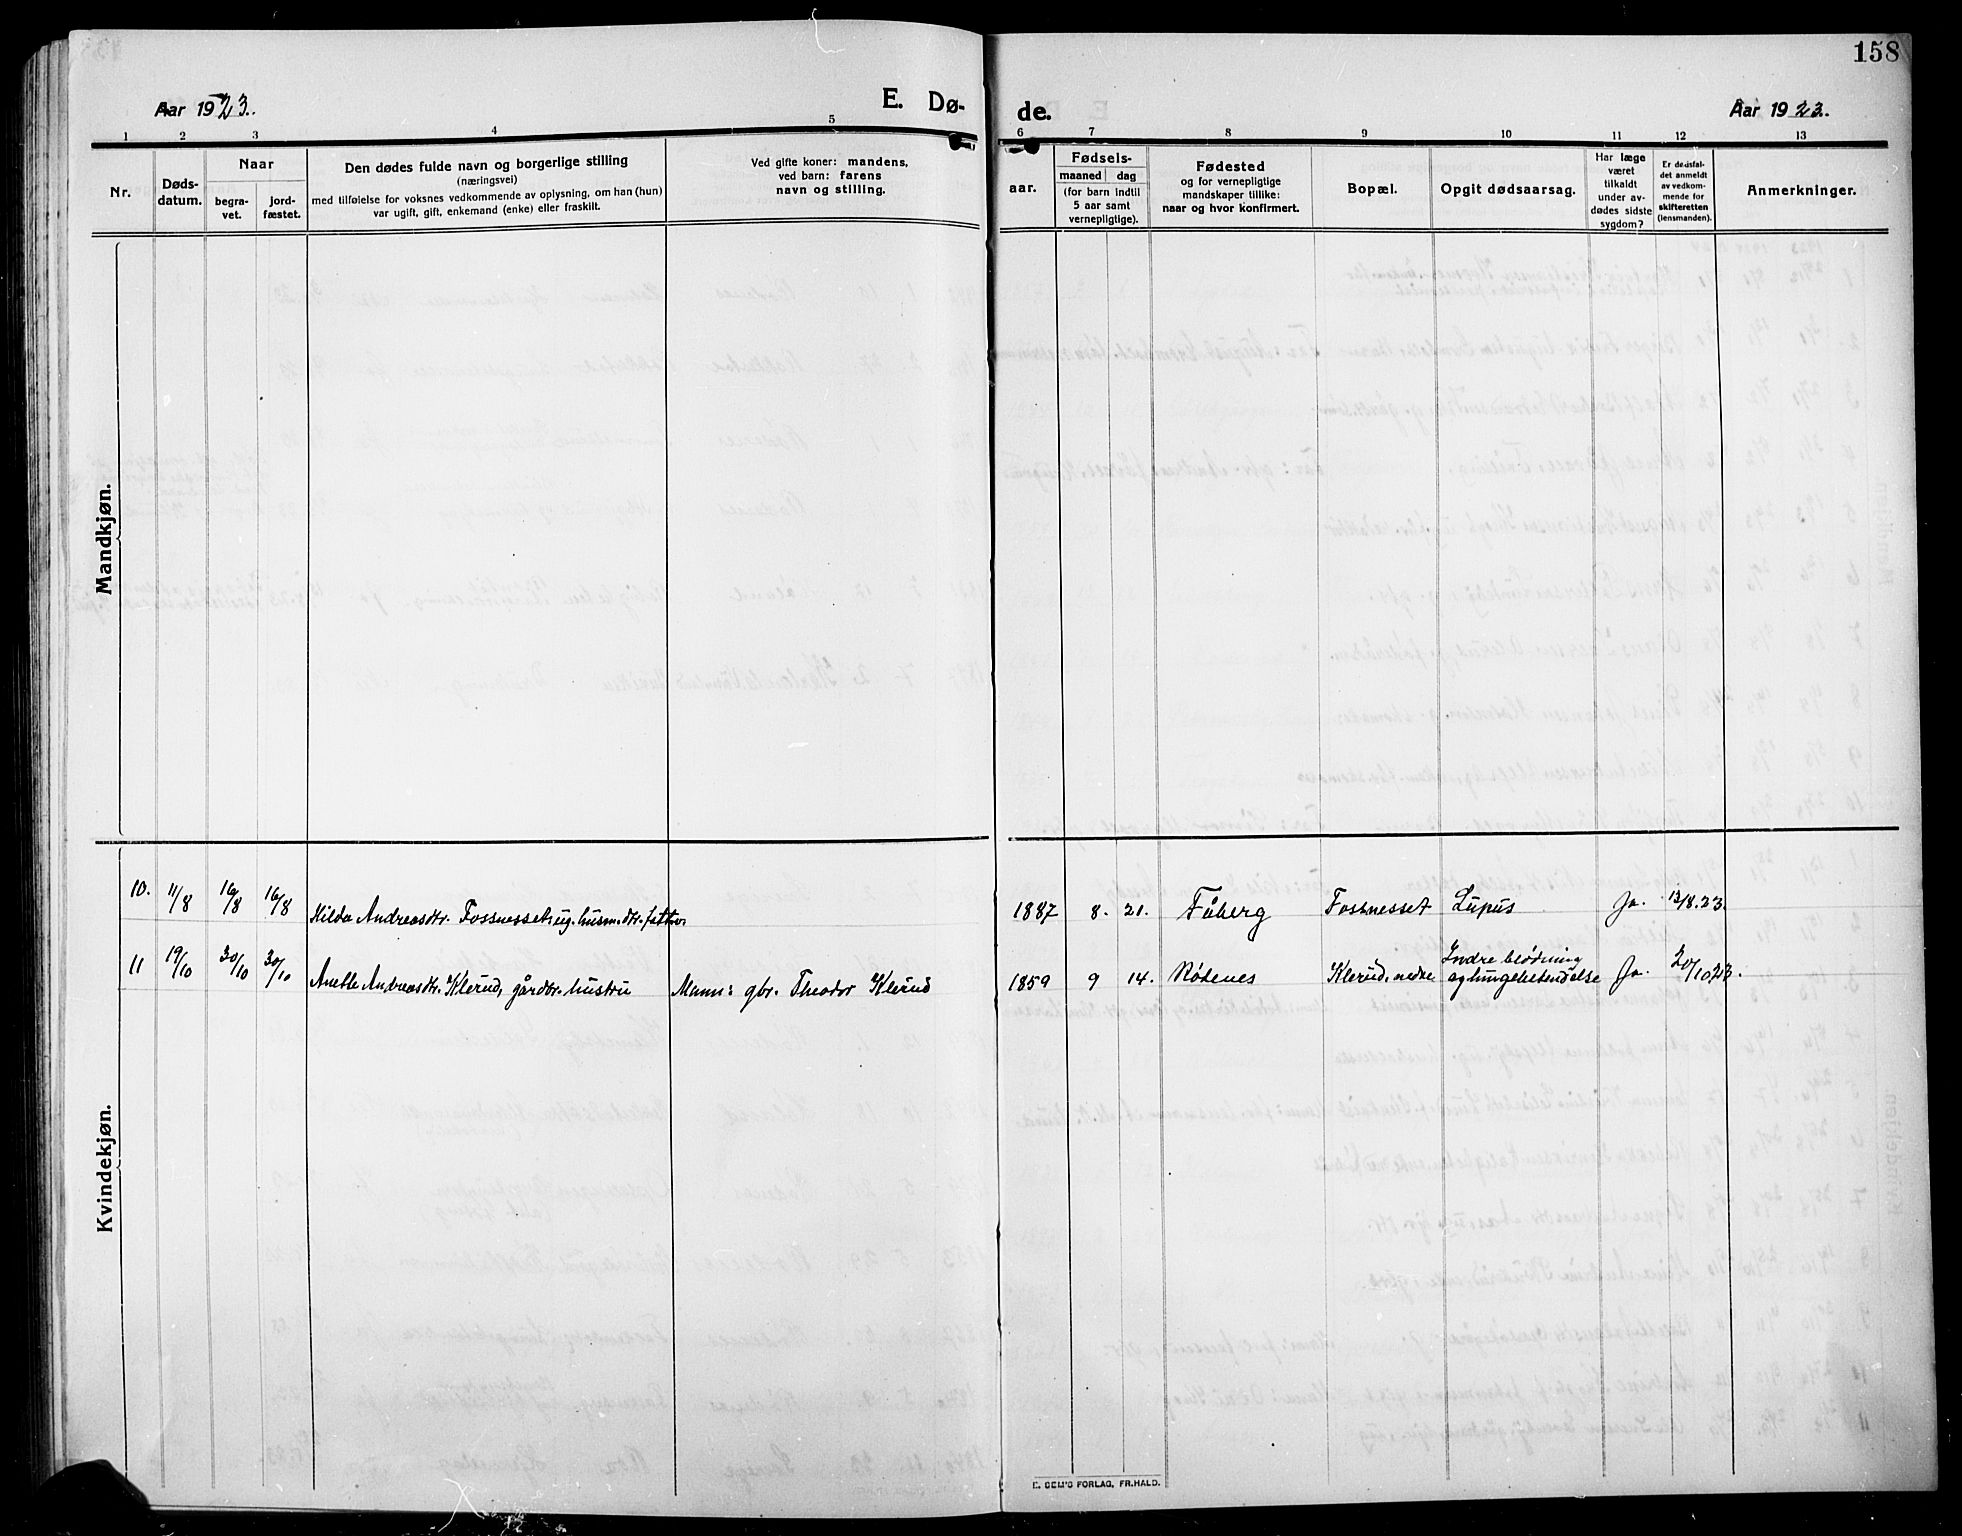 158
Aar 1923.
E. Dø-
de.
Aar 1923.
1 2 3 4 5 6 7 8 9 10 11 12 13
Nr.
Døds-
datum.
Naar
begra-
vet.
jord-
fæstet.
Den dødes fulde navn og borgerlige stilling
(næringsvei)
med tilføielse for voksnes vedkommende av oplysning, om han (hun)
var ugift, gift, enkemand (enke) eller fraskilt.
Ved gifte koner: mandens,
ved barn: farens
navn og stilling.
aar.
Fødsels-
maaned dag
(for barn indtil
5 aar samt
vernepligtige).
Fødested
og for vernepligtige
mandskaper tillike:
naar og hvor konfirmert.
Bopæl.
Opgit dødsaarsag.
Har læge
været
tilkaldt
under av-
dødes sidste
sygdom?
Er dødsfal-
det anmeldt
av vedkom-
mende for
skifteretten
(lensmanden).
Anmerkninger.
Mandkjøn.
Kvindekjøn.
10. 11/8 16/8 16/8 Hilda Andreasdtr. Fossnesset, ug. husm.dtr. 1887 8. 21. Fåberg Fossnesset Lupus Ja. 13/8.23.
11 19/10 30/10 30/10 Anette Andreasdtr. Klerud, gårdbr. hustru Mann: gbr. Theodor Klerud 1859 9 14. Rödenes Klerud, nedre Indre blödning
og lungebetendelse Ja. 20/10.23.
E. SEM'S FORLAG, FR.HALD.